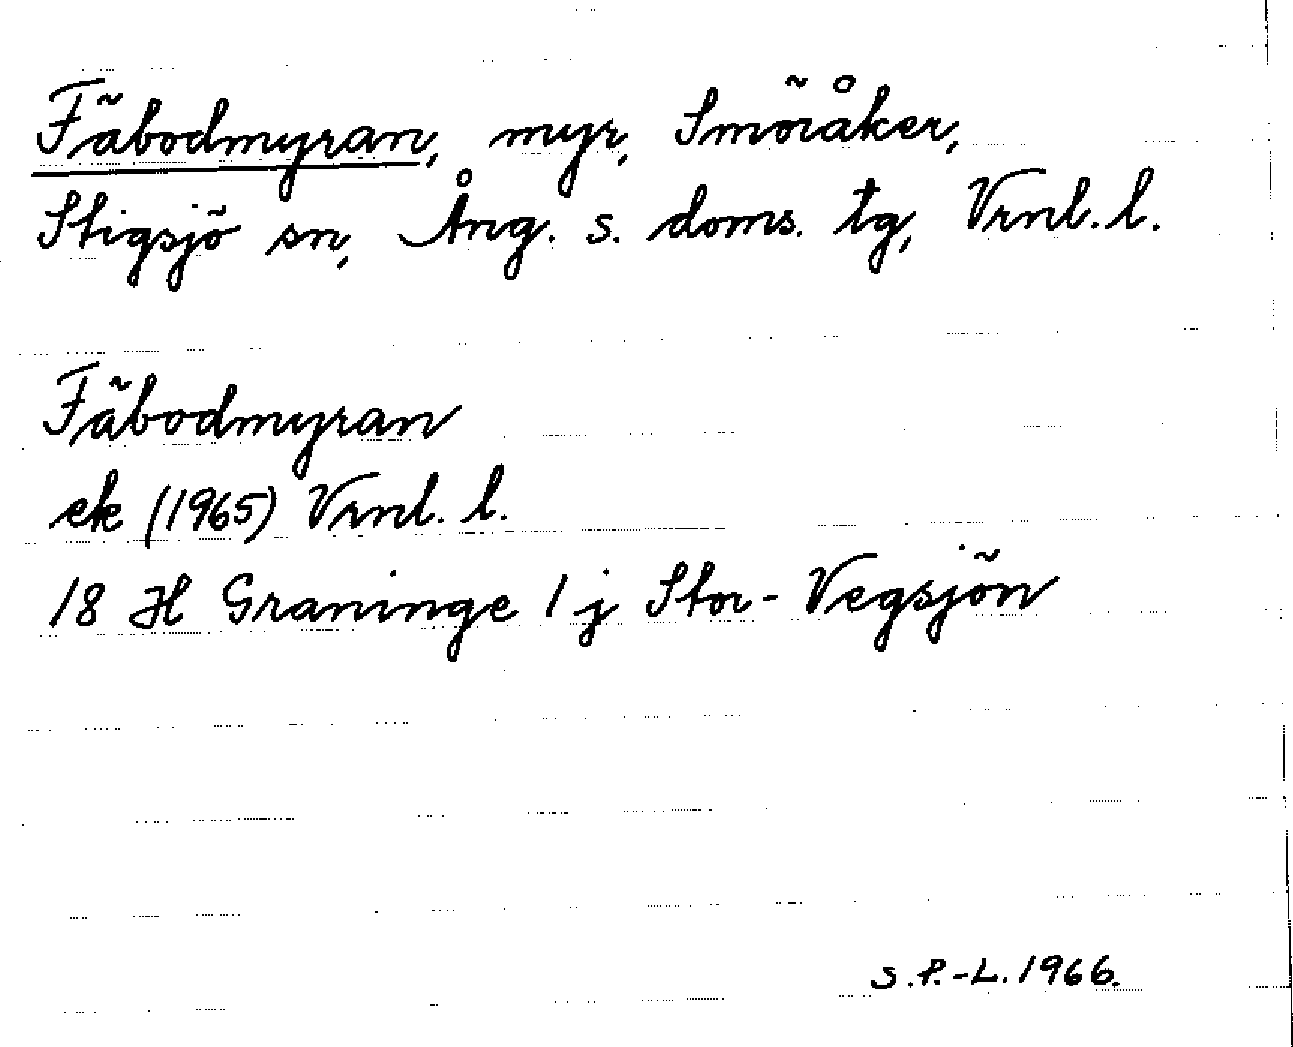 Fäbodmyran, myr, Smöråker,
Stigsjö sn, Ång. s. doms. tg, Vrnl. l.
Fäbodmyran
ek (1965) Vrnl. l.
18 H Graninge 1 j Stor-Vegsjön
S.P.-L. 1966.